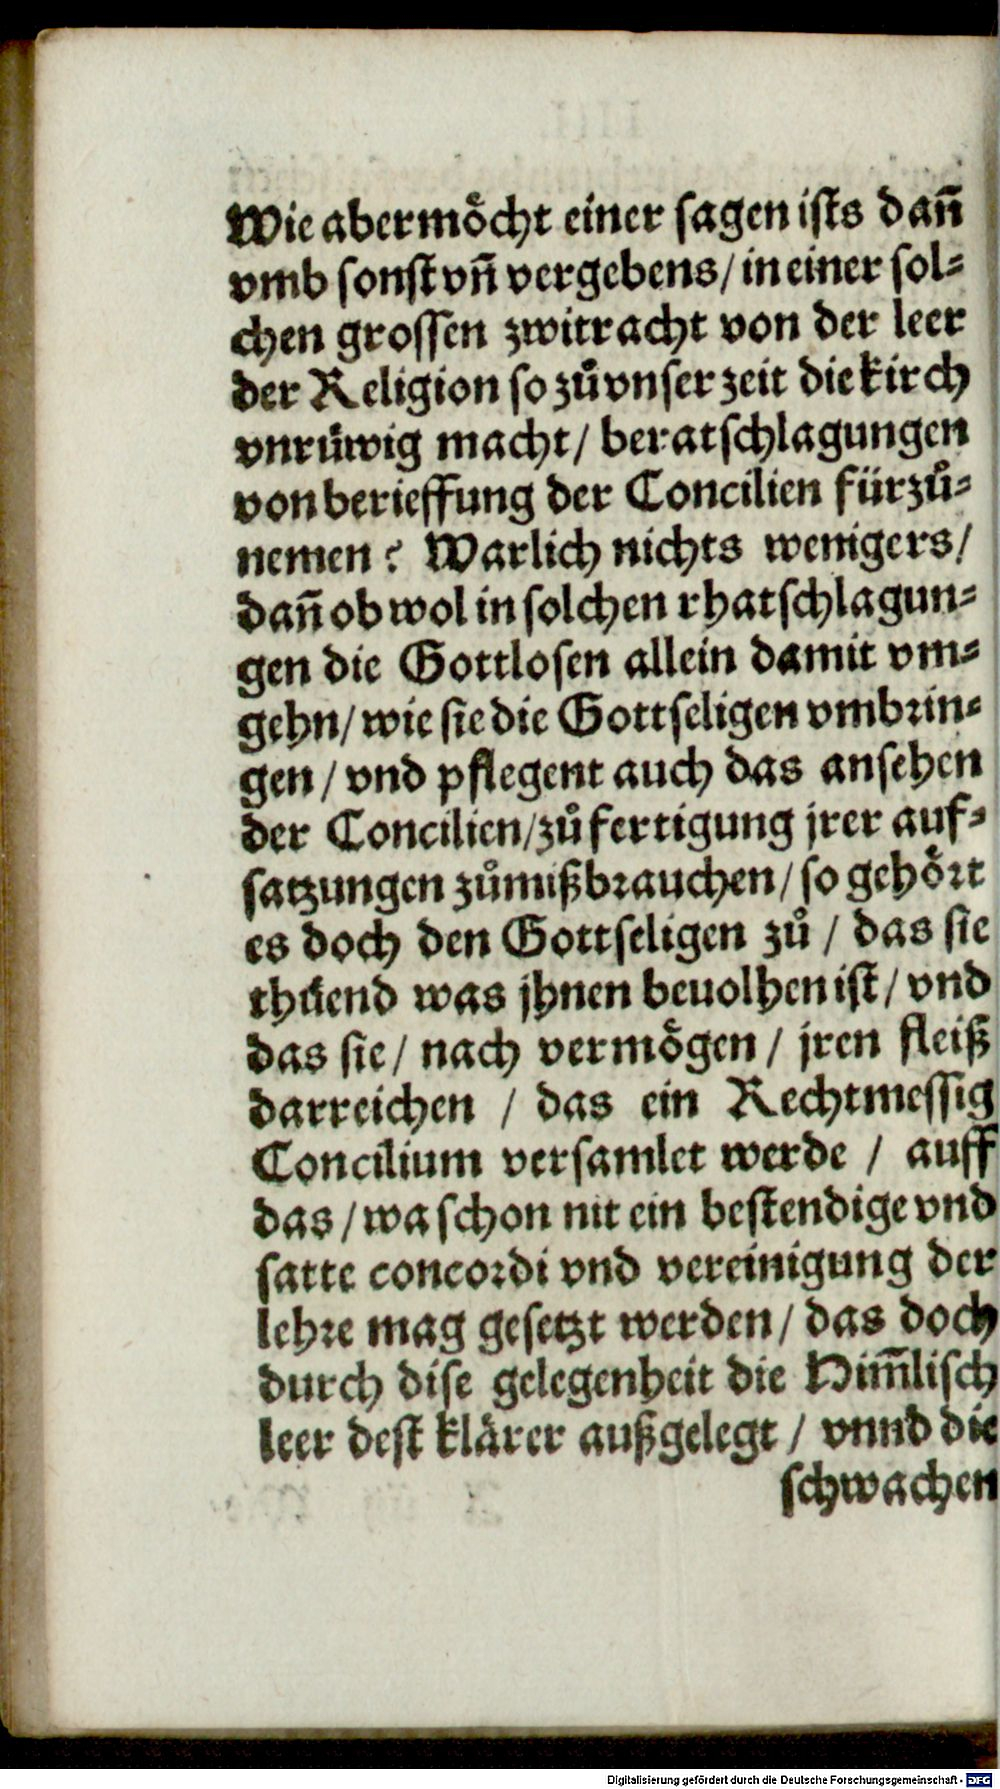 Wie aber möcht einer sagen ists dañ
vmb sonst vñ vergebens / in einer sol⸗
chen grossen zwitracht von der leer
der Religion so zů vnser zeit die kirch
vnrüwig macht / beratschlagungen
von berieffung der Concilien fürzů⸗
nemen? Warlich nichts wenigers /
dañ ob wol in solchen rhatschlagun⸗
gen die Gottlosen allein damit vm⸗
gehn / wie sie die Gottseligen vmbrin⸗
gen / vnd pflegent auch das ansehen
der Concilien / zů fertigung jrer auf⸗
satzungen zůmißbrauchen / so gehört
es doch den Gottseligen zů / das sie
thüend was jhnen beuolhen ist / vnd
das sie / nach vermögen / jren fleiß
darreichen / das ein Rechtmessig
Concilium versamlet werde / auff
das / wa schon nit ein bestendige vnd
satte concordi vnd vereinigung der
lehre mag gesetzt werden / das doch
durch dise gelegenheit die Him̄lisch
leer dest klärer außgelegt / vnnd die
schwachen
Digitalisierung gefördert durch die Deutsche Forschungsgemeinschaft - DFG